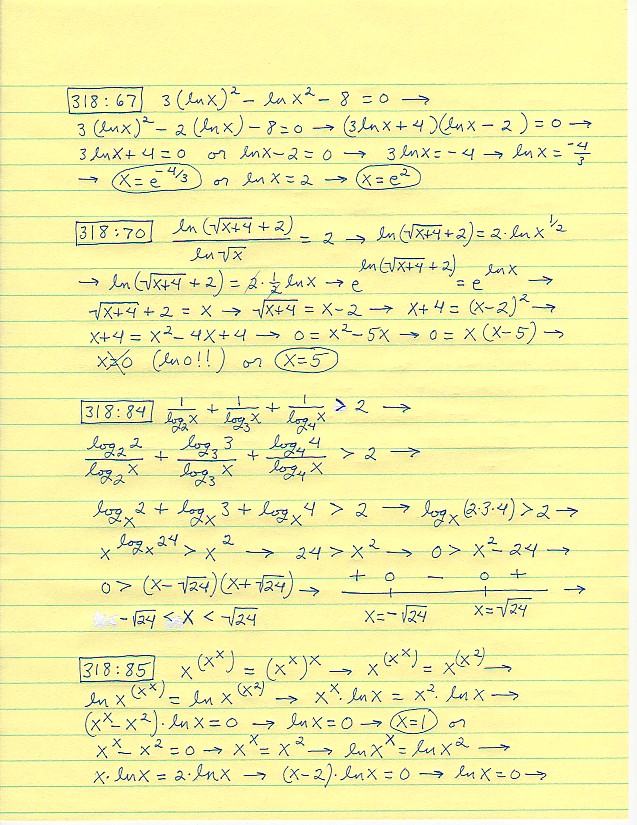 318:67 3(lnx)² - lnx² - 8 = 0 →
3(lnx)² - 2(lnx) - 8 = 0 → (3lnx+4)(lnx-2) = 0 →
3lnx+4 = 0 or lnx-2 = 0 → 3lnx = -4 → lnx = -4/3
→ x = e^(-4/3) or lnx = 2 → x = e²
318:70 ln(√(x+4) + 2) / ln√x = 2 → ln(√(x+4) + 2) = 2·lnx^(1/2)
→ ln(√(x+4) + 2) = 2·½lnx → e^(ln(√(x+4) + 2)) = e^(lnx) →
√(x+4) + 2 = x → √(x+4) = x-2 → x+4 = (x-2)² →
x+4 = x² - 4x + 4 → 0 = x² - 5x → 0 = x(x-5) →
x=0 (ln0!!) or x=5
318:84 1/log₂x + 1/log₃x + 1/log₄x > 2 →
log₂2/log₂x + log₃3/log₃x + log₄4/log₄x > 2 →
logₓ2 + logₓ3 + logₓ4 > 2 → logₓ(2·3·4) > 2 →
x^(logₓ24) > x² → 24 > x² → 0 > x² - 24 →
0 > (x-√24)(x+√24) → + 0 - 0 + →
-√24 < x < √24 x=-√24 x=√24
318:85 x^(x^x) = (x^x)^x → x^(x^x) = x^(x²) →
ln x^(x^x) = ln x^(x²) → x^x·lnx = x²·lnx →
(x^x - x²)·lnx = 0 → lnx = 0 → x=1 or
x^x - x² = 0 → x^x = x² → lnx^x = lnx² →
x·lnx = 2·lnx → (x-2)·lnx = 0 → lnx = 0 →